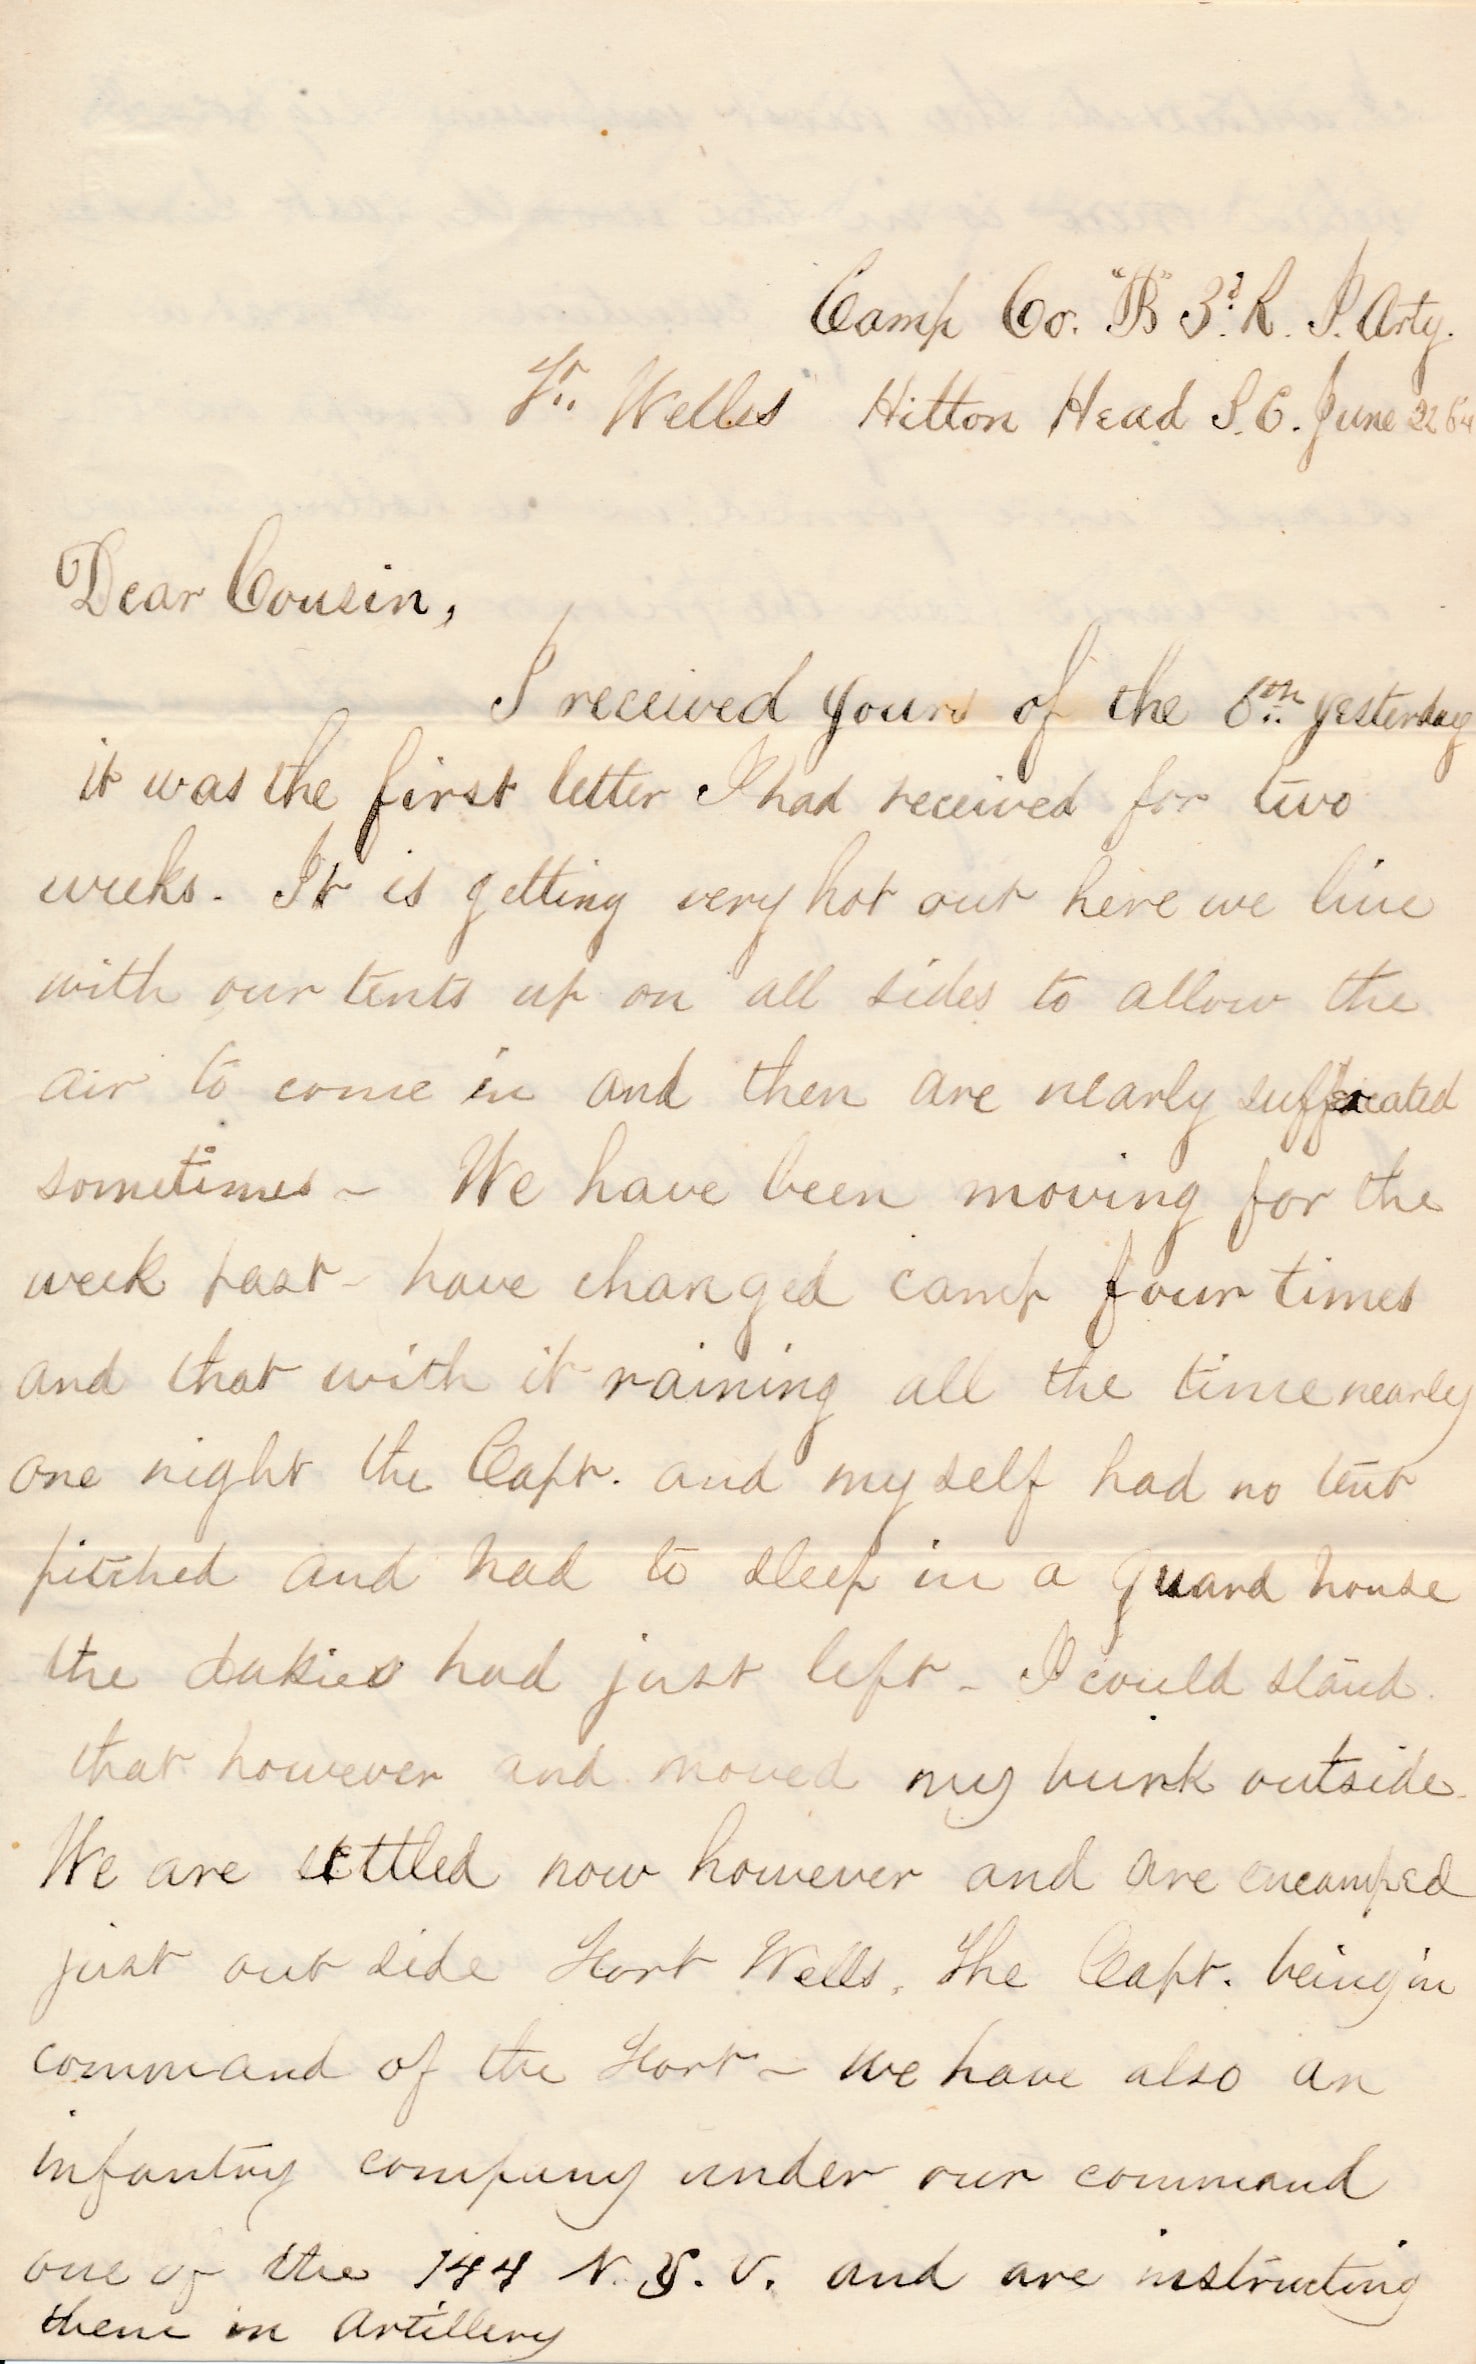 Camp Co. "B" 3d. R. I. Arty.
Ft. Welles Hilton Head S.C. June 22 64
Dear Cousin,
I received yours of the 6th yesterday
it was the first letter I had received for two
weeks. It is getting very hot out here we live
with our tents up on all sides to allow the
air to come in and then are nearly suffocated
sometimes - We have been moving for the
week past - have changed camp four times
and that with it raining all the time nearly
one night the Capt. and my self had no tent
pitched and had to sleep in a guard house
the dakies had just left - I could stand
that however and moved my bunk outside.
We are settled now however and are encamped
just out side Fort Wells. The Capt. being in
command of the Fort - we have also an
infantry company under our command
one of the 144 N.Y.V. and are instructing
them in Artillery